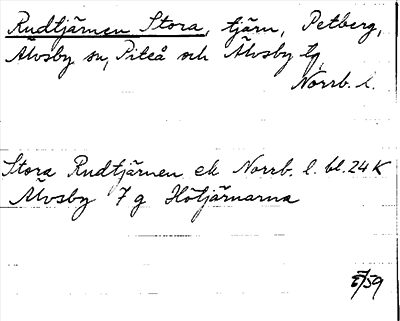 Rudtjärnen Stora, tjärn, Petberg,
Älvsby sn, Piteå och Älvsby tg,
Norrb. l.
Stora Rudtjärnen ek Norrb. l. bl. 24 K
Älvsby 7 g Hötjärnarna
/59